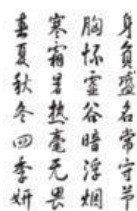 身負盛名常守
胸怀靈谷暗浮烟
寒霜暑热毫无畏
春夏秋冬四季妍